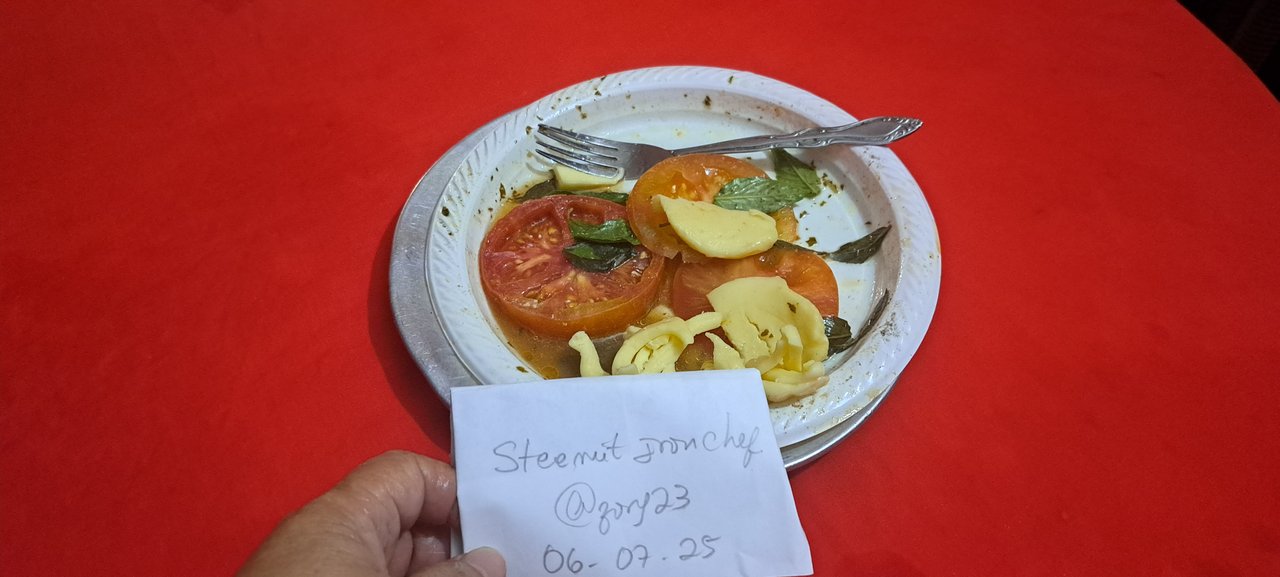 Steemit Iron chef
@zory23
06-07-25